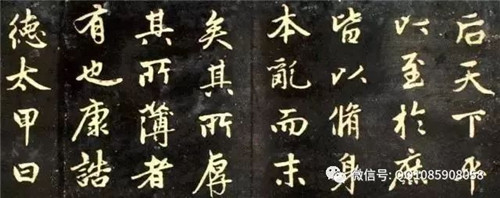 后天下平
以至於庶
皆以脩身
本亂而末
矣其所厚
其所薄者
有也康誥
德太甲曰
微信号: QQ1085908058